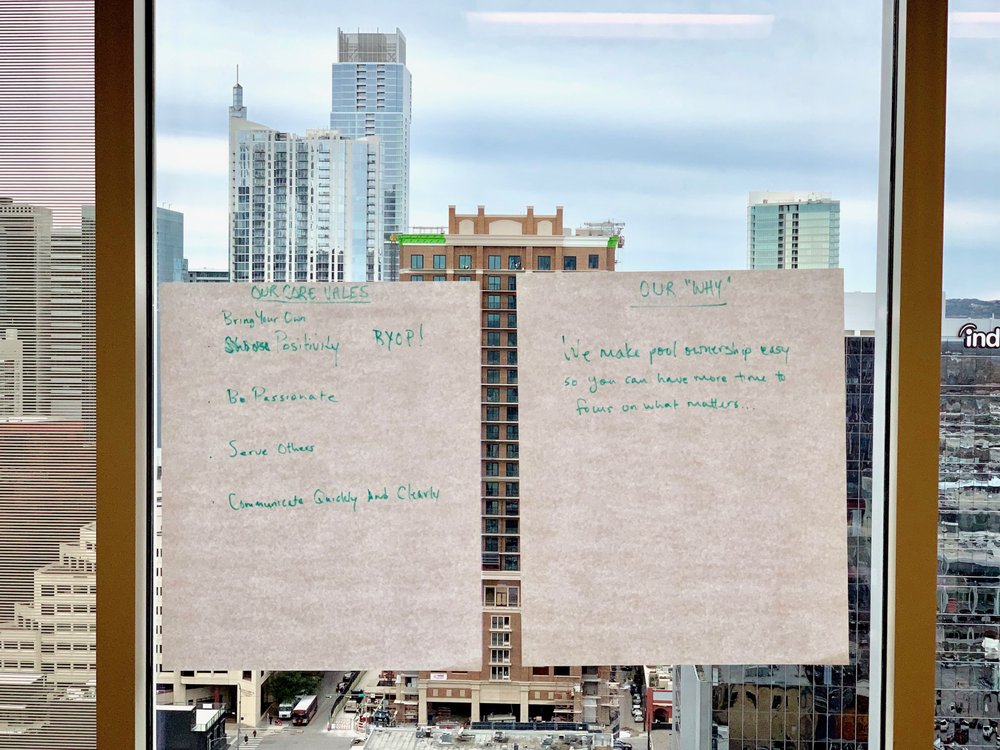 OUR CORE VALES
Bring Your Own
Choose Positivity BYOP!
Be Passionate
Serve Others
Communicate Quickly And Clearly
OUR "WHY"
We make pool ownership easy
so you can have more time to
focus on what matters...
ind